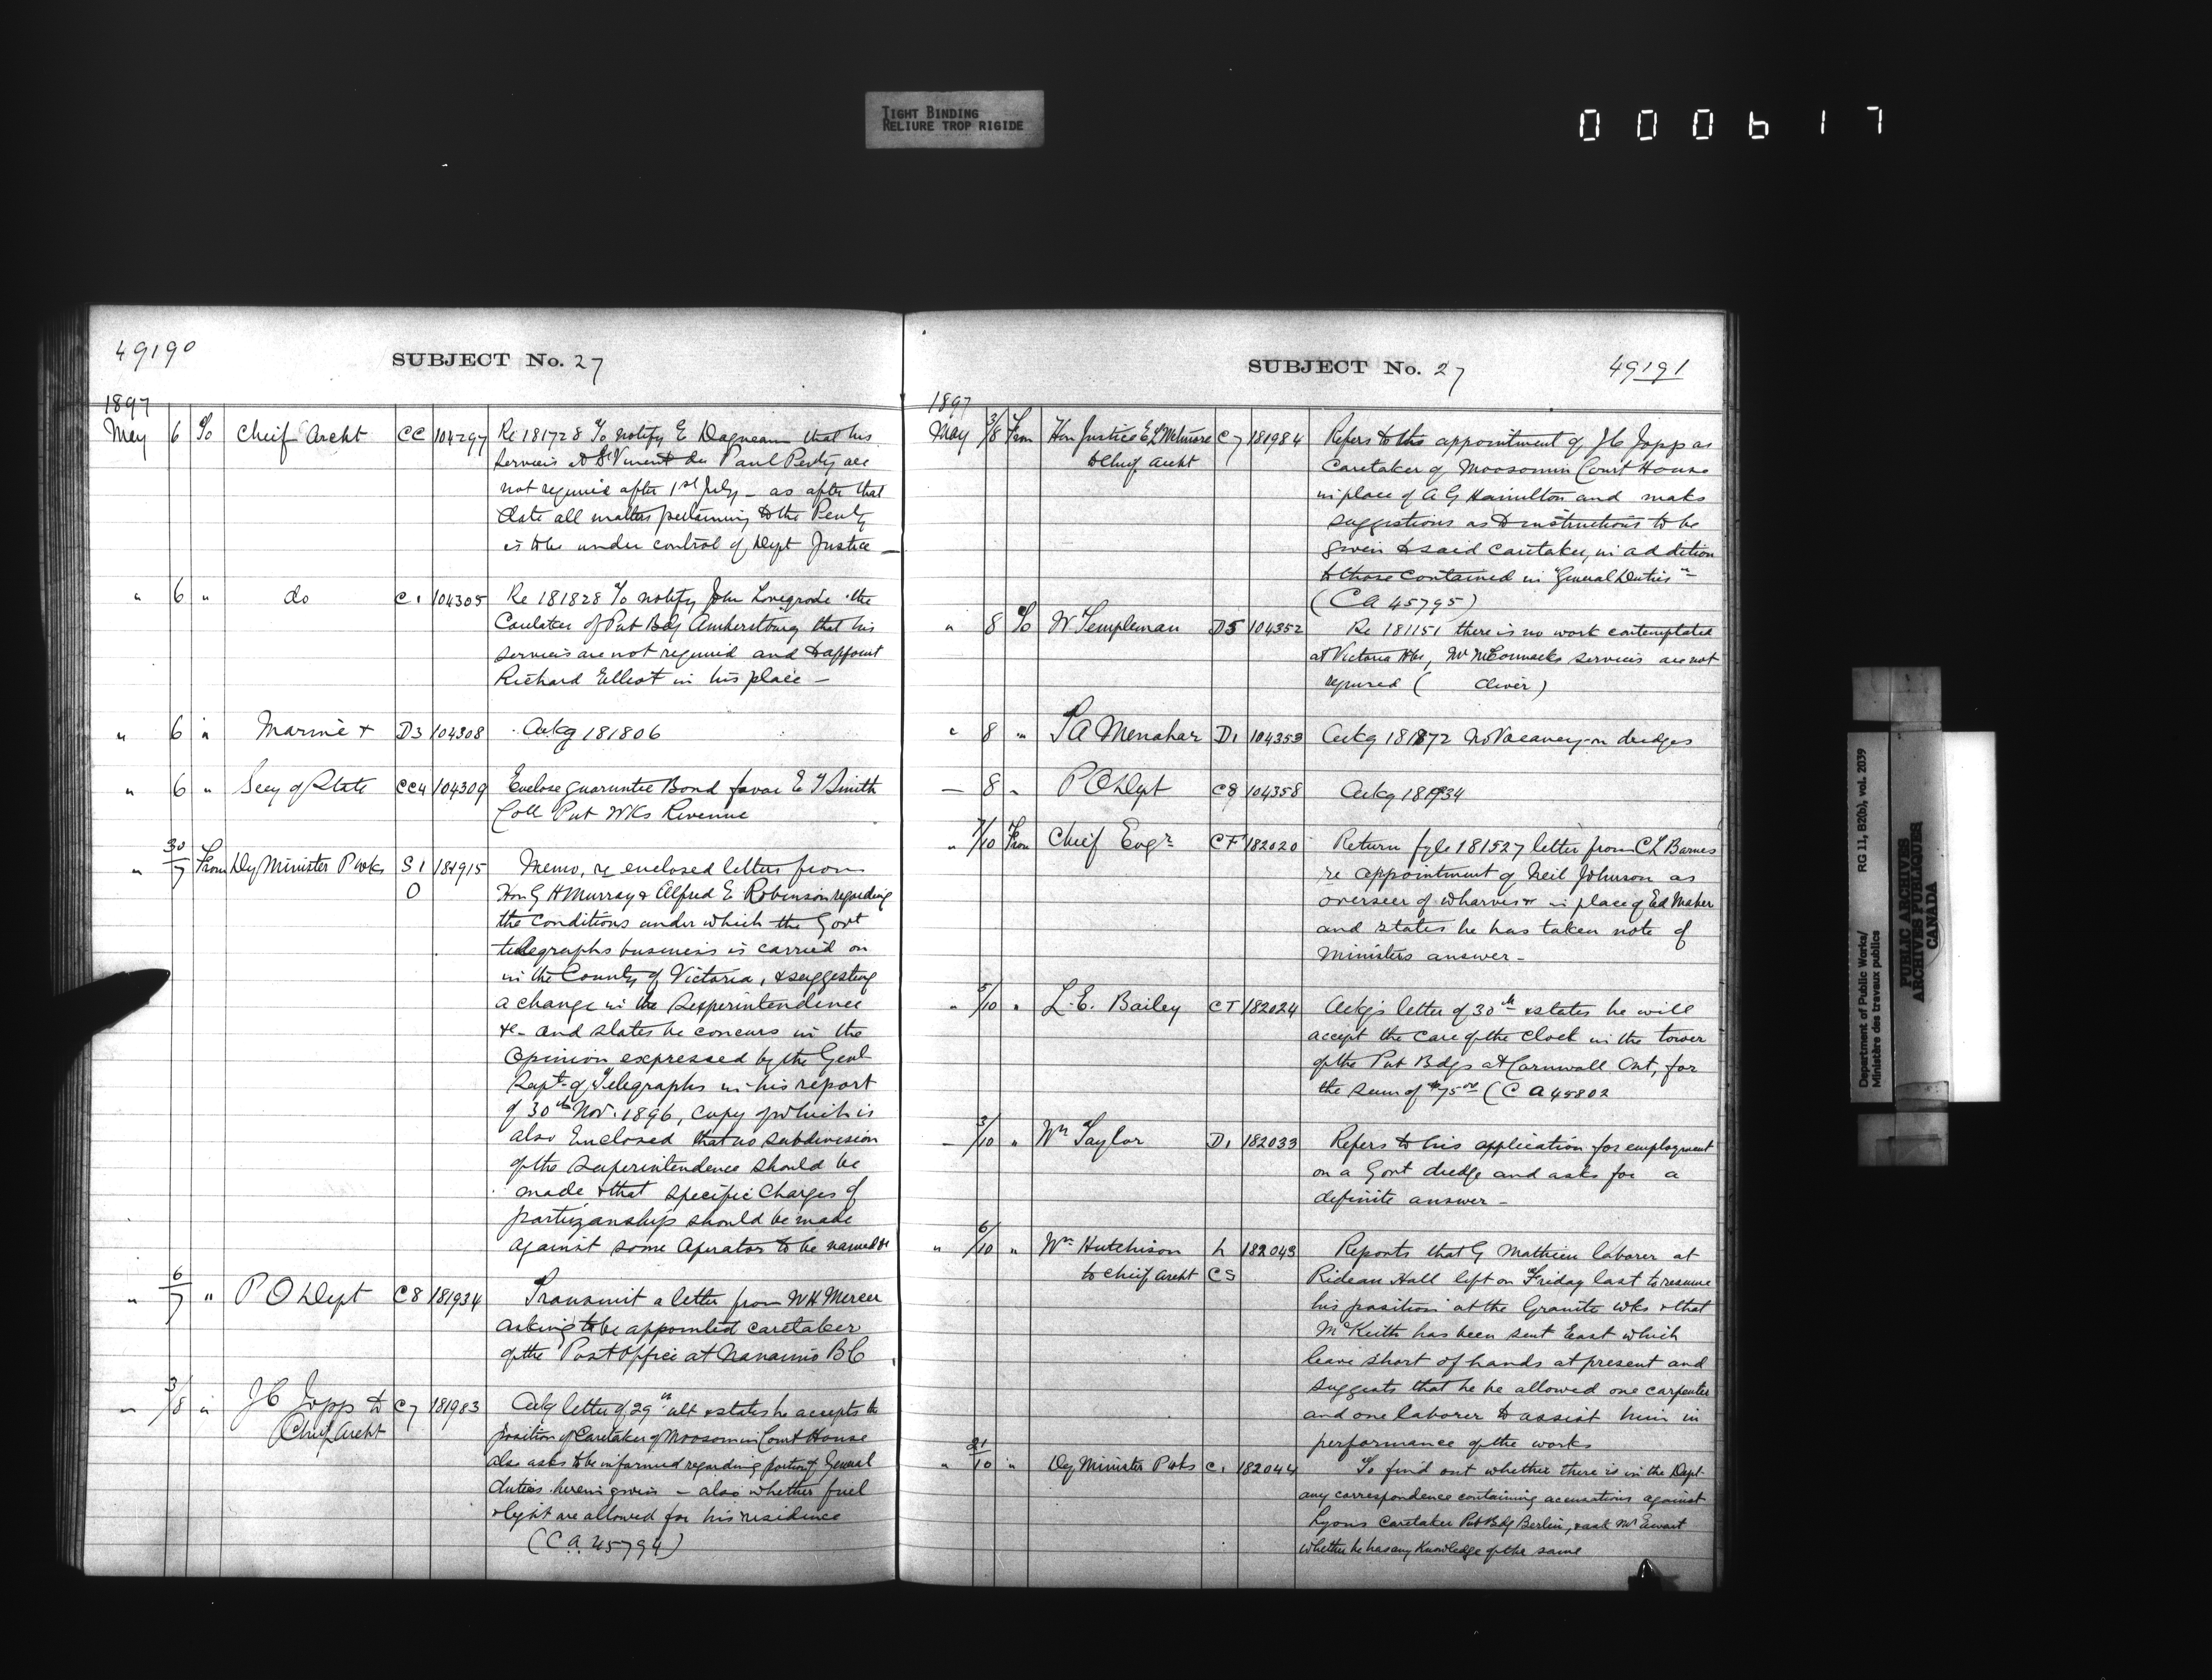 TIGHT BINDING
RELIURE TROP RIGIDE
000617
49190
SUBJECT No. 27
1897
May 6 To Cheif Archt CC 104297 Re 181728 To notify E Dagneau that his
services at St Vincent de Paul Penty are
not require after 1st July - as after that
date all matters pertaining to the Penty
is to be under control of Dept Justice -
" 6 " do C1 104305 Re 181828 To notify John Lovegrove the
Caretaker of Pub Bdg Amherstburg that his
services are not required and to appoint
Richard Elliot in his place -
" 6 " Marine + D3 104308 Ackg 181806
" 6 " Secy of State CC4 104309 Enclose guaruntee Bond favor E T Smith
Coll Pub Wks Revenue
" 30/7 From Dy Minister P Wks S1 181915 Memo, re enclosed letters from
O Hon G H Murray & Alfred E Robinson regarding
the conditions under which the Govt
telegraphs business is carried on
in the County of Victoria, & suggesting
a change in the Superintendence
&c - and states he concurs in the
Opinion expressed by the Genl
Supt of Telegraphs in his report
of 30th Nov. 1896, copy of which is
also Enclosed that no subdivision
of the Superintendence should be
made & that specific charges of
partizanship should be made
against some Operator to be named &c
" 6/7 " P O Dept C8 181934 Transmit a letter from W H Mercer
asking to be appointed caretaker
of the Post Office at Nanaimo B C
" 3/8 " J C Jopp to C7 181983 Ackg letter of 29th ult & states he accepts the
Chief Archt position of Caretaker of Moosomin Court House
also asks to be informed regarding portion of General
duties herein given - also whether fuel
& light are allowed for his residence
(C.a. 45794)
SUBJECT No. 27
49191
1897
May 3/8 From Hon Justice E L Wetmore C7 181984 Refers to the appointment of J C Jopp as
to Chief Archt Caretaker of Moosomin Court House
in place of A G Hamilton and maks
suggestions as to instructions to be
given to said caretaker, in addition
to those contained in "General Duties" -
(C a 45795)
" 8 To W Templeman D5 104352 Re 181151 there is no work contemplated
at Victoria Hbr, Mr McCormacks services are not
required ( diver)
" 8 " D1 104353 Ackg 181872 No Vacancy on dredges
- 8 " P O Dept C8 104358 Ackg 181934
" 7/10 From Chief Engr CF 182020 Return fyle 181527 letter from C L Barnes
re appointment of Neil Johnson as
overseer of wharves & in place of Ed Maher
and states he has taken note of
Ministers answer -
" 5/10 " L. E. Bailey CT 182024 Ackgs letter of 30th & states he will
accept the care of the Clock in the tower
of the Pub Bdgs at Cornwall Ont, for
the sum of $75.00 (C a 45802
- 3/10 " Wm Taylor D1 182033 Refers to his application for employment
on a Govt dredge and asks for a
definite answer -
" 6/10 " Wm Hutchison L 182043 Reports that G Mathieu laborer at
to Chief Archt CS Rideau Hall left on Friday last to resume
his position at the Granite wks & that
McKeith has been sent East which
leave short of hands at present and
suggests that he be allowed one carpenter
and one laborer to assist him in
performance of the works
" 21/10 " Dy Minister P wks C1 182044 To find out whether there is in the Dept
any correspondence containing accusations against
Lyons Caretaker Pub Bdg Berlin, & ask Mr Ewart
whether he has any Knowledge of the same
Department of Public Works/ RG 11, B2(b), vol. 2039
Ministère des travaux publics
PUBLIC ARCHIVES
ARCHIVES PUBLIQUES
CANADA